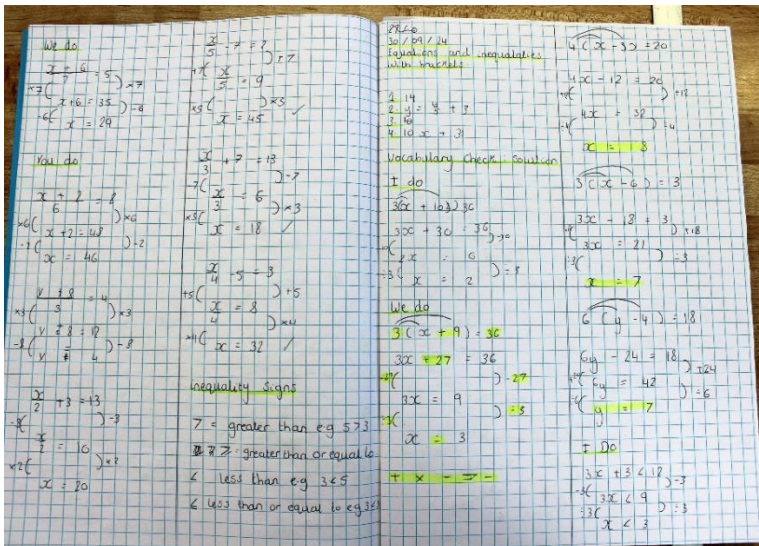 We do
x + 6 / 7 = 5
×7( )×7
x+6 = 35
-6( )-6
x = 29
You do
x + 2 / 6 = 8
×6( )×6
x+2 = 48
-2( )-2
x = 46
y + 8 / 3 = 4
×3( )×3
y + 8 = 12
-8( )-8
y = 4
x/2 + 3 = 13
-3( )-3
x/2 = 10
×2( )×2
x = 20
x/5 - 7 = 2
+7( )+7
x/5 = 9
×5( )×5
x = 45 ✓
x/3 + 7 = 13
-7( )-7
x/3 = 6
×3( )×3
x = 18 ✓
x/4 - 5 = 3
+5( )+5
x/4 = 8
×4( )×4
x = 32 ✓
inequality signs
> = greater than eg 5>3
greater than or equal to
< less than e.g 3<5
≤ less than or equal to eg 3<
30/09/24
Equations and inequalaties
with brackets
1. 14
3. 16
4. 10x + 31
Vocabulary check: solution
I do
3(x + 10) 36
3x + 30 = 36
)-30
= 6
÷3( )÷3
x = 2
We do
3(x + 9) = 36
3x + 27 = 36
-27( )-27
3x = 9
÷3( )÷3
x = 3
+ × - = -
4(x - 3) = 20
4x - 12 = 20
+12( )+12
4x = 32
÷4( )÷4
x = 8
3(x - 6) = 3
3x - 18 = 3
)+18
3x = 21
÷3( )÷3
x = 7
6(y - 4) = 18
6y - 24 = 18
+24( )+24
6y = 42
÷6( )÷6
y = 7
I Do
3x + 3 < 12
-3( )-3
3x < 9
÷3( )÷3
x < 3